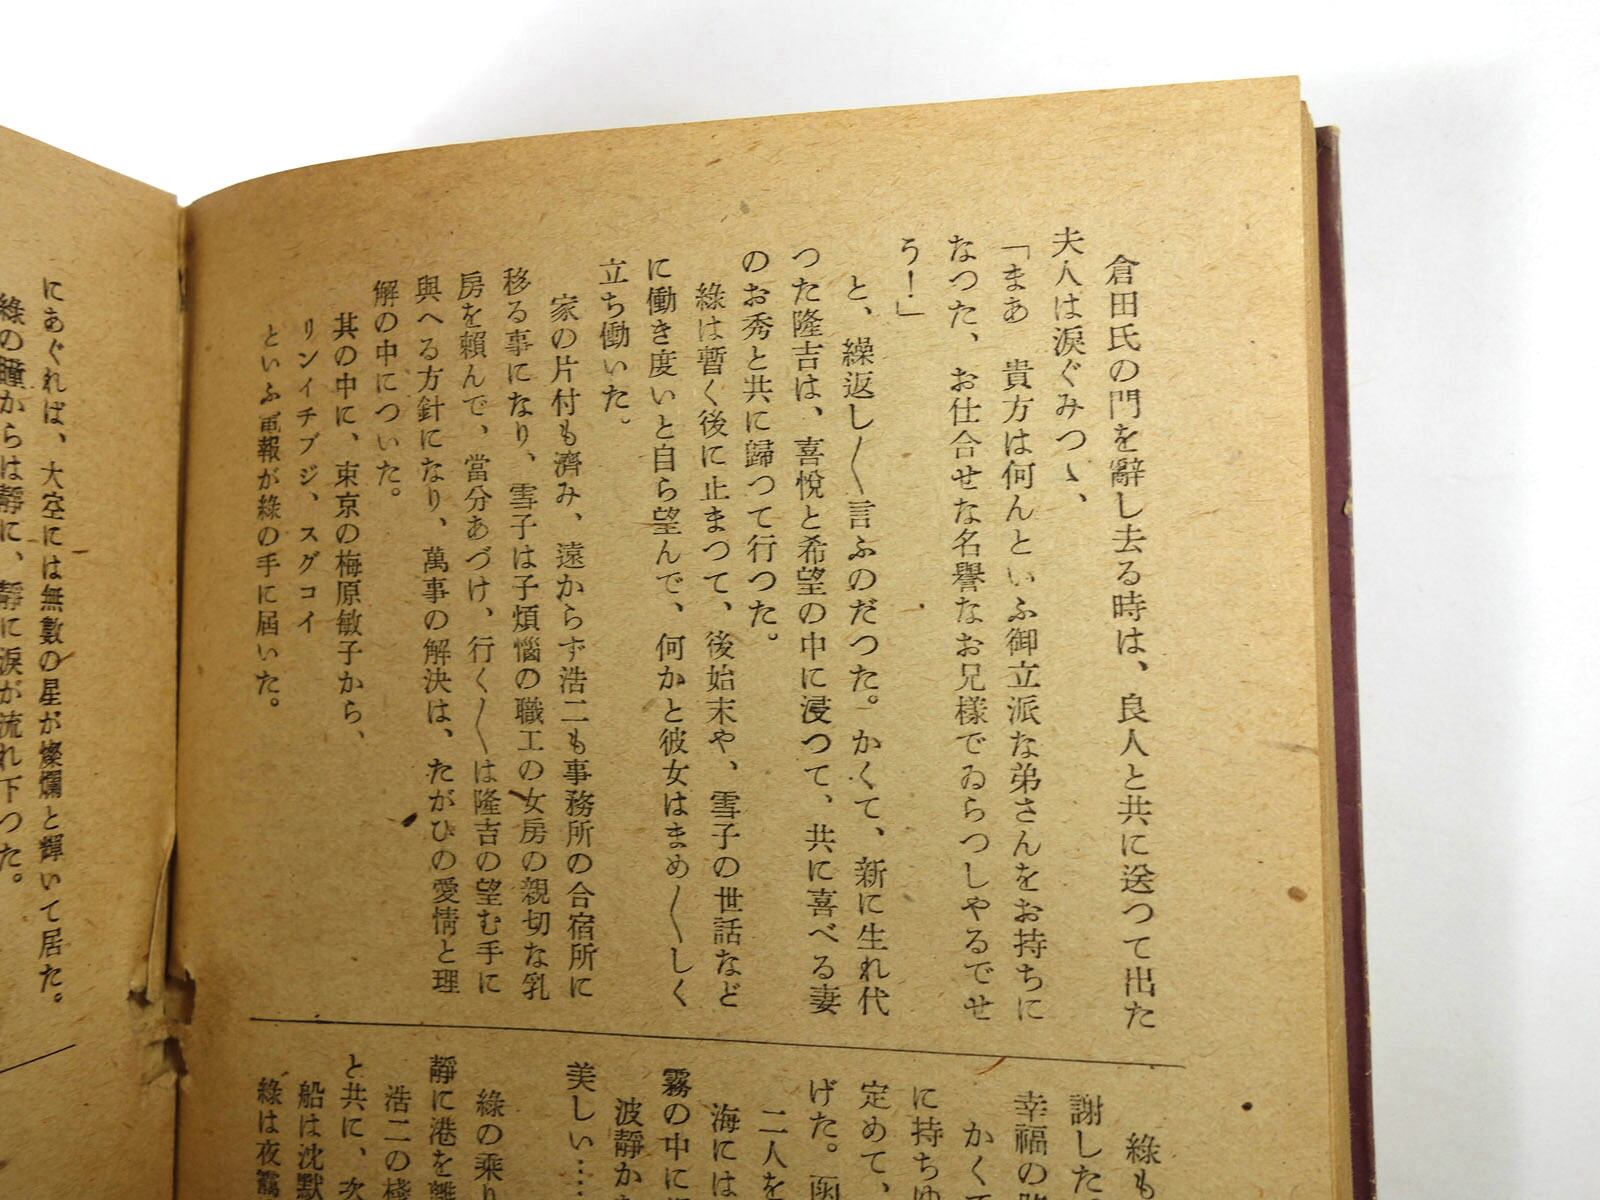 倉田氏の門を辭し去る時は、良人と共に送つて出た
夫人は涙ぐみつゝ、
「まあ　貴方は何んといふ御立派な弟さんをお持ちに
なつた、お仕合せな名譽なお兄樣でゐらつしやるでせ
う！」
と、繰返し〱言ふのだつた。かくて、新に生れ代
つた隆吉は、喜悅と希望の中に浸つて、共に喜べる妻
のお秀と共に歸つて行つた。
綠は暫く後に止まつて、後始末や、雪子の世話など
に働き度いと自ら望んで、何かと彼女はまめ〱しく
立ち働いた。
家の片付も濟み、遠からず浩二も事務所の合宿所に
移る事になり、雪子は子煩惱の職工の女房の親切な乳
房を賴んで、當分あづけ、行く〱は隆吉の望む手に
與へる方針になり、萬事の解決は、たがひの愛情と理
解の中についた。
其の中に、東京の梅原敏子から、
リンイチブジ、スグコイ
といふ電報が綠の手に屆いた。
綠も
謝した
幸福の
かくて
に持ちゆ
定めて、
げた。函
二人を
海には
霧の中に
波靜か
美しい……
綠の乘り
靜に港を離
浩二の棧
と共に、次
船は沈默
綠は夜靄
にあぐれば、大空には無數の星が燦爛と輝いて居た。
綠の瞳からは靜に、靜に淚が流れ下つた。